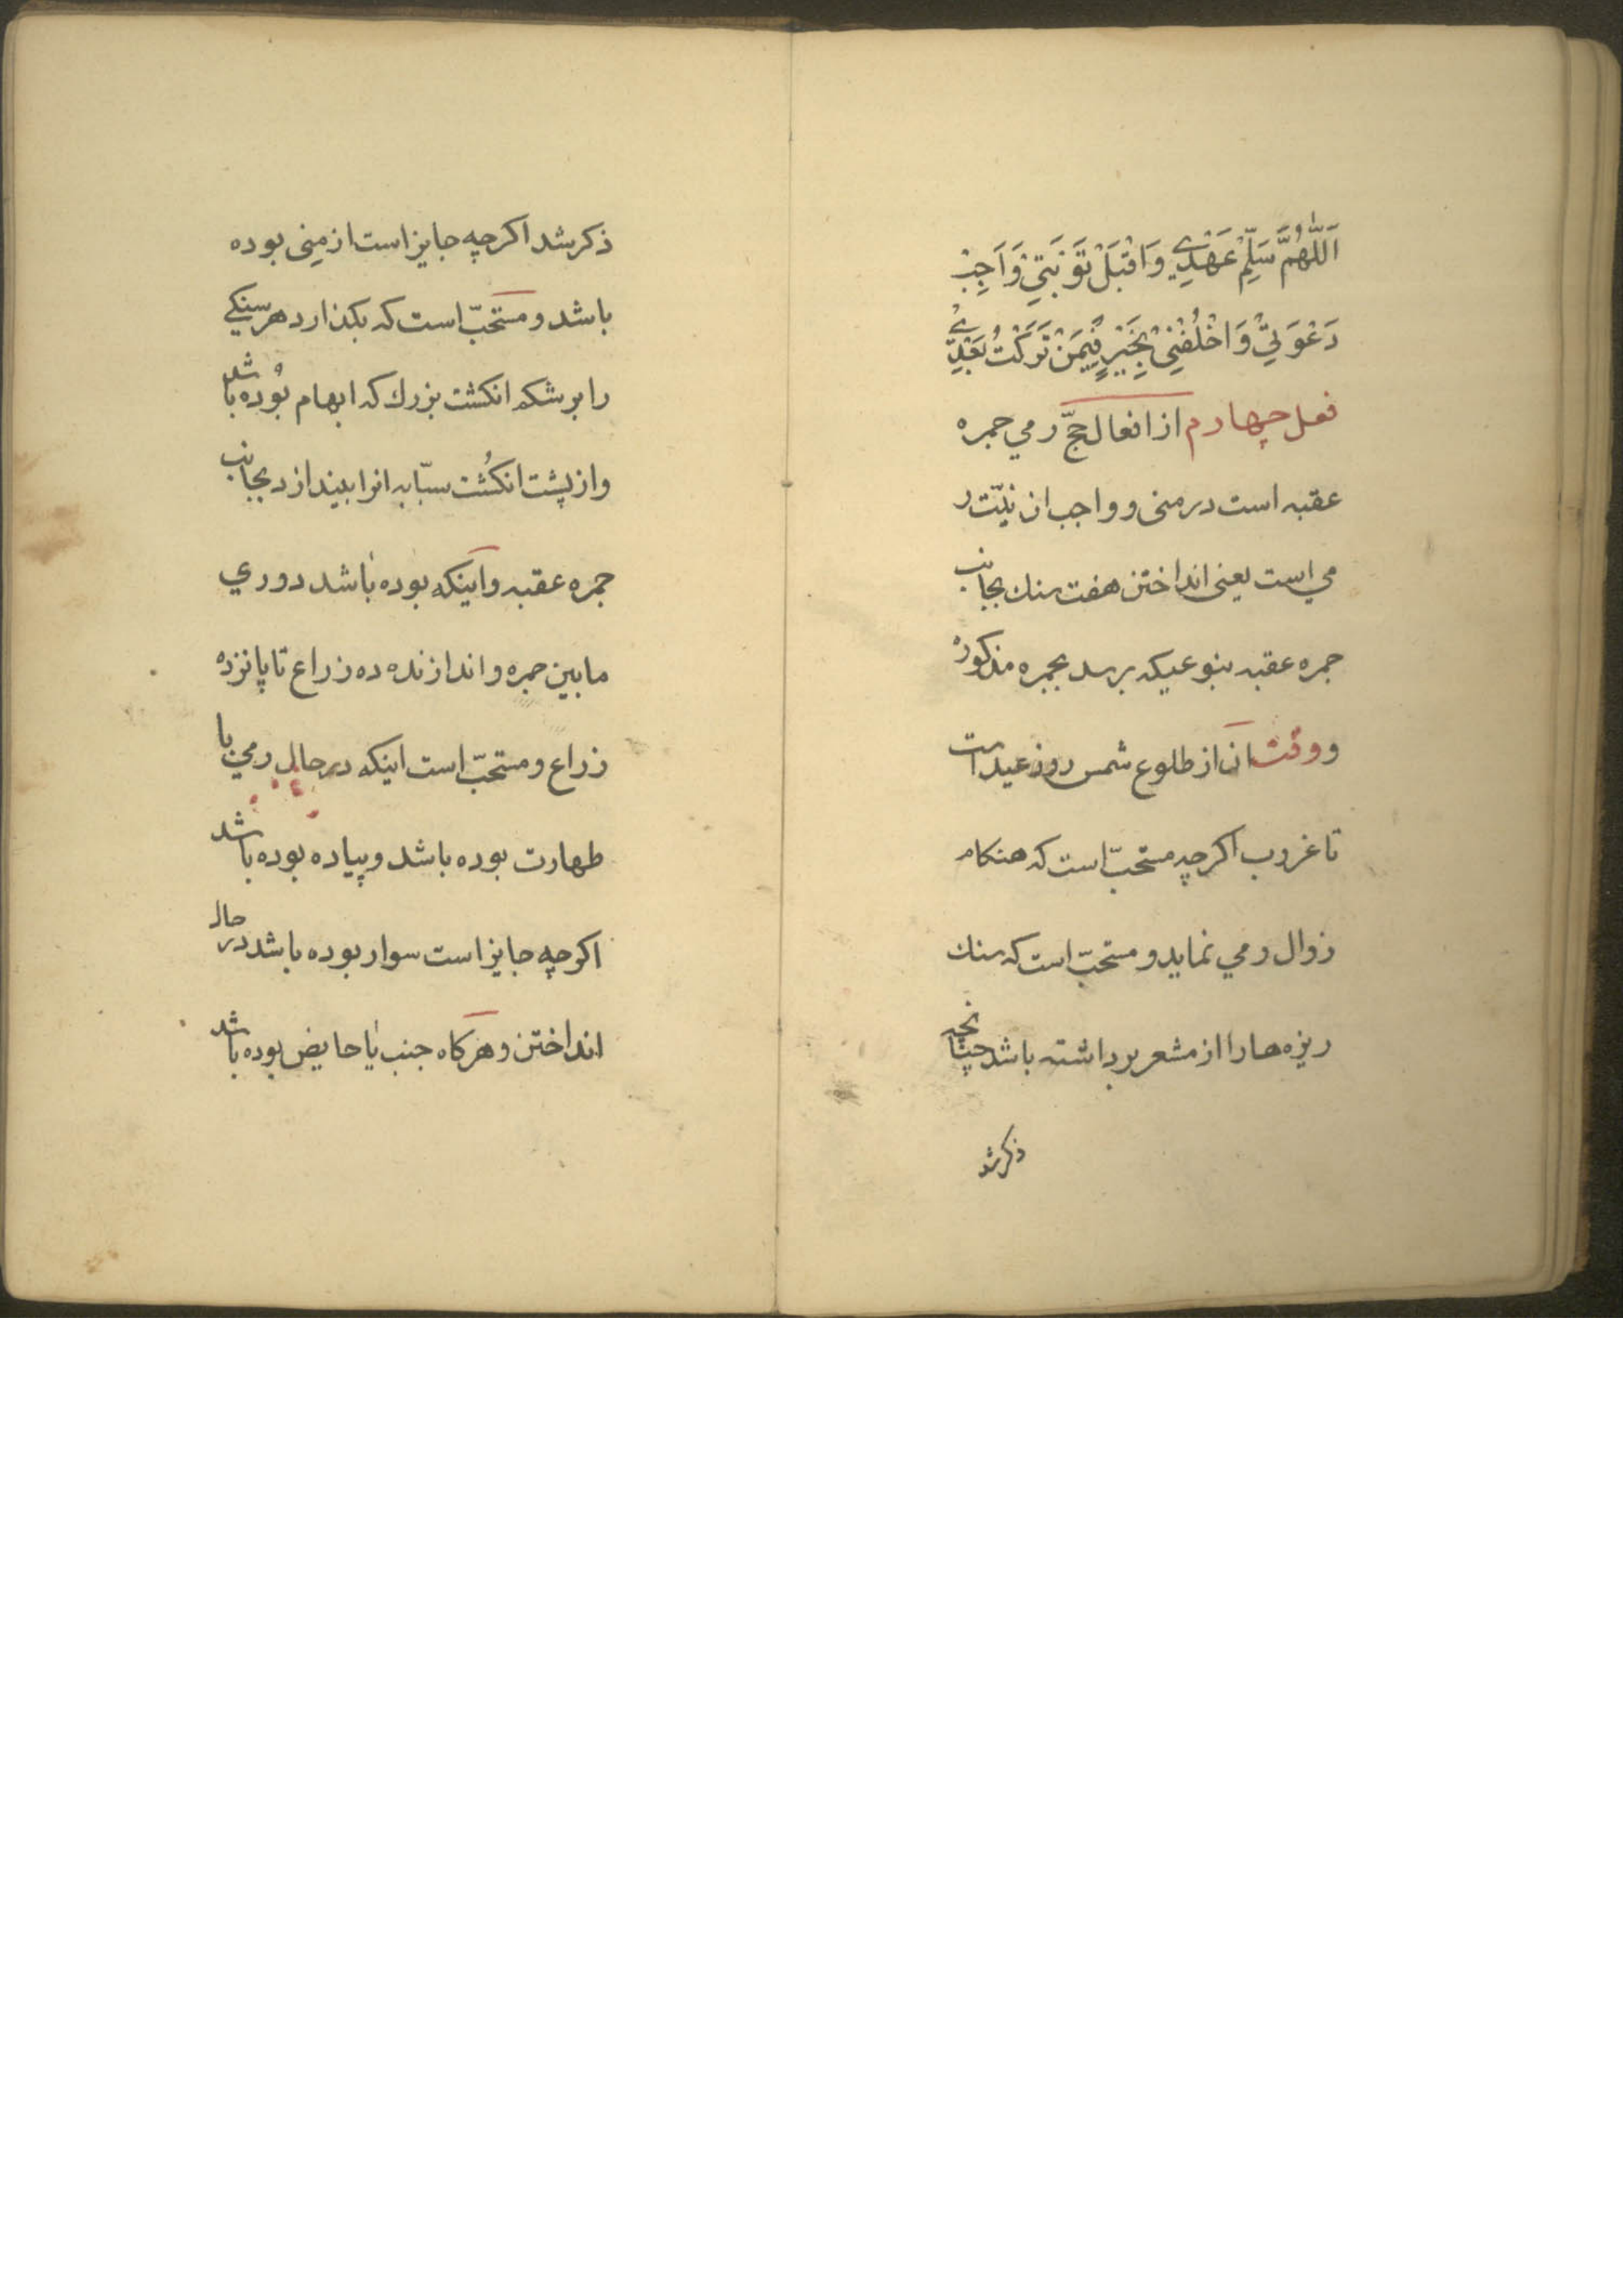 اَللّٰهُمَّ سَلِّمْ عَهْدِي وَاقْبَلْ تَوْبَتِيْ وَاَجِبْ
دَعْوَتِيْ وَاخْلُفْنِيْ بِخَيْرٍ فِيْمَنْ تَرَكْتُ بَعْدِيْ
فعل چهارم از افعال حجّ رمي جمره
عقبه است در منی و واجب ان نیّت ر
مي است یعنی انداختن هفت سنك بجانب
جمره عقبه بنوعیکه برسد بجمره مذکوره
و وقت ان از طلوع شمس روز عید است
تا غروب اکرچه مستحبّ است که هنکام
زوال رمي نماید و مستحبّ است که سنك
ریزه ها را از مشعر برداشته باشد چنانچه
ذکر شد
ذکر شد اکرچه جایز است از مِنی بوده
باشد و مستحبّ است که بکذارد هر سنکي
را بر شکم انکشت بزرك که ابهام بوده باشد
و از پشت انکُشت سبّابه انرا بیندازد بجانب
جمره عقبه و اینکه بوده باشد دوري
مابین جمره و اندازنده ده زراع تا پانزده
زراع و مستحبّ است اینکه در حال رمي با
طهارت بوده باشد و پیاده بوده باشد
اکرچه جایز است سوار بوده باشد در حال
انداختن و هرکاه جنب یا حایض بوده باشد